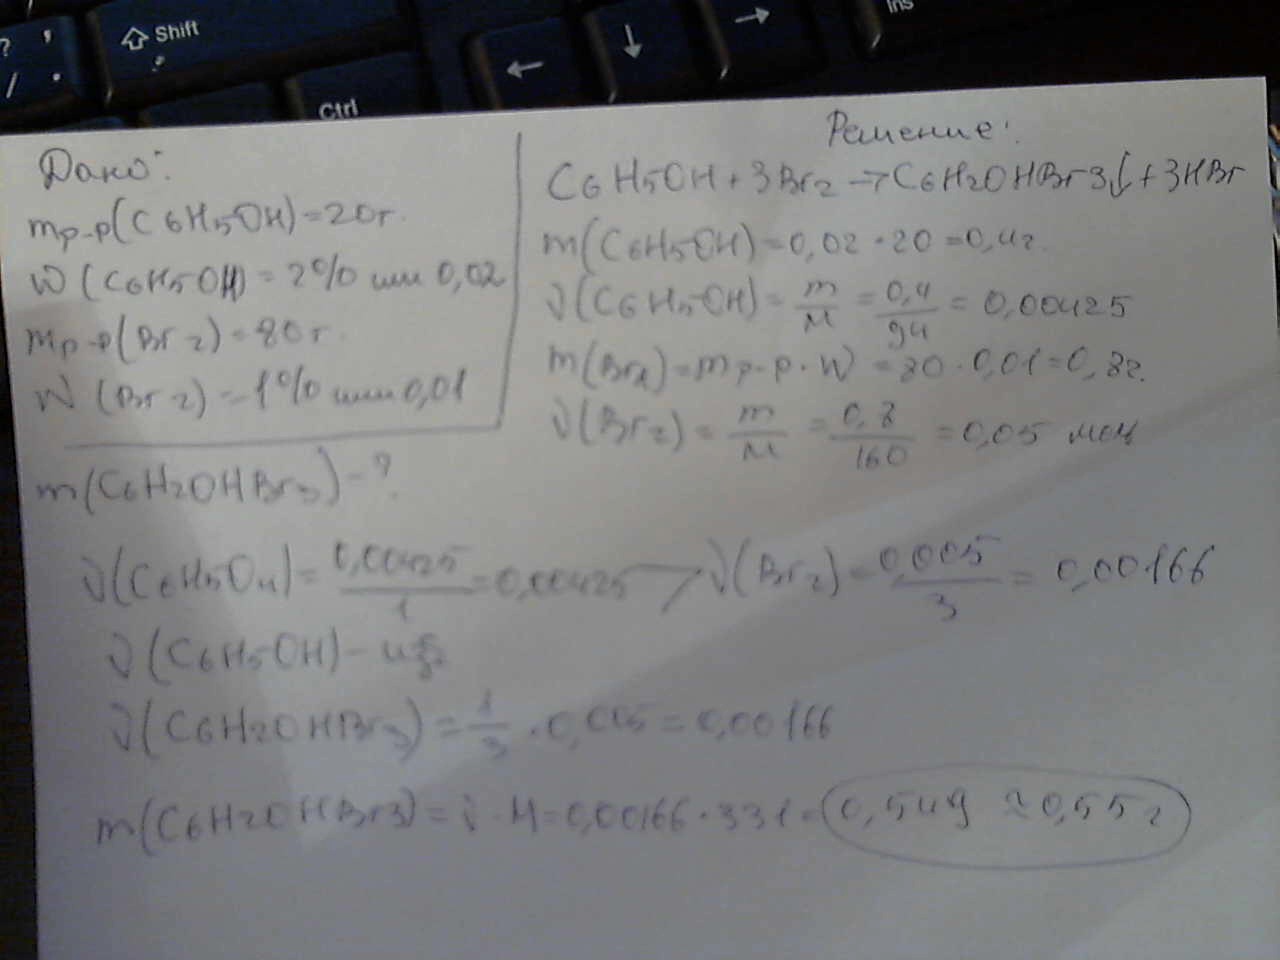 Shift
Ctrl
Ins
Дано:
mр-р(C6H5OH)=20г.
W(C6H5OH)=2% или 0,02
mр-р(Br2)=80г.
W(Br2)=1% или 0,01
m(C6H2OHBr3)-?
Решение:
C6H5OH+3Br2→C6H2OHBr3↓+3HBr
m(C6H5OH)=0,02·20=0,4г.
ν(C6H5OH)=m/M=0,4/94=0,00425
m(Br2)=mр-р·W=80·0,01=0,8г.
ν(Br2)=m/M=0,8/160=0,05 моль
ν(C6H5OH)=0,00425/1=0,00425>ν(Br2)=0,005/3=0,00166
ν(C6H5OH)-изб
ν(C6H2OHBr3)=1/3·0,005=0,00166
m(C6H2OHBr3)=ν·M=0,00166·331=0,549≈0,55г